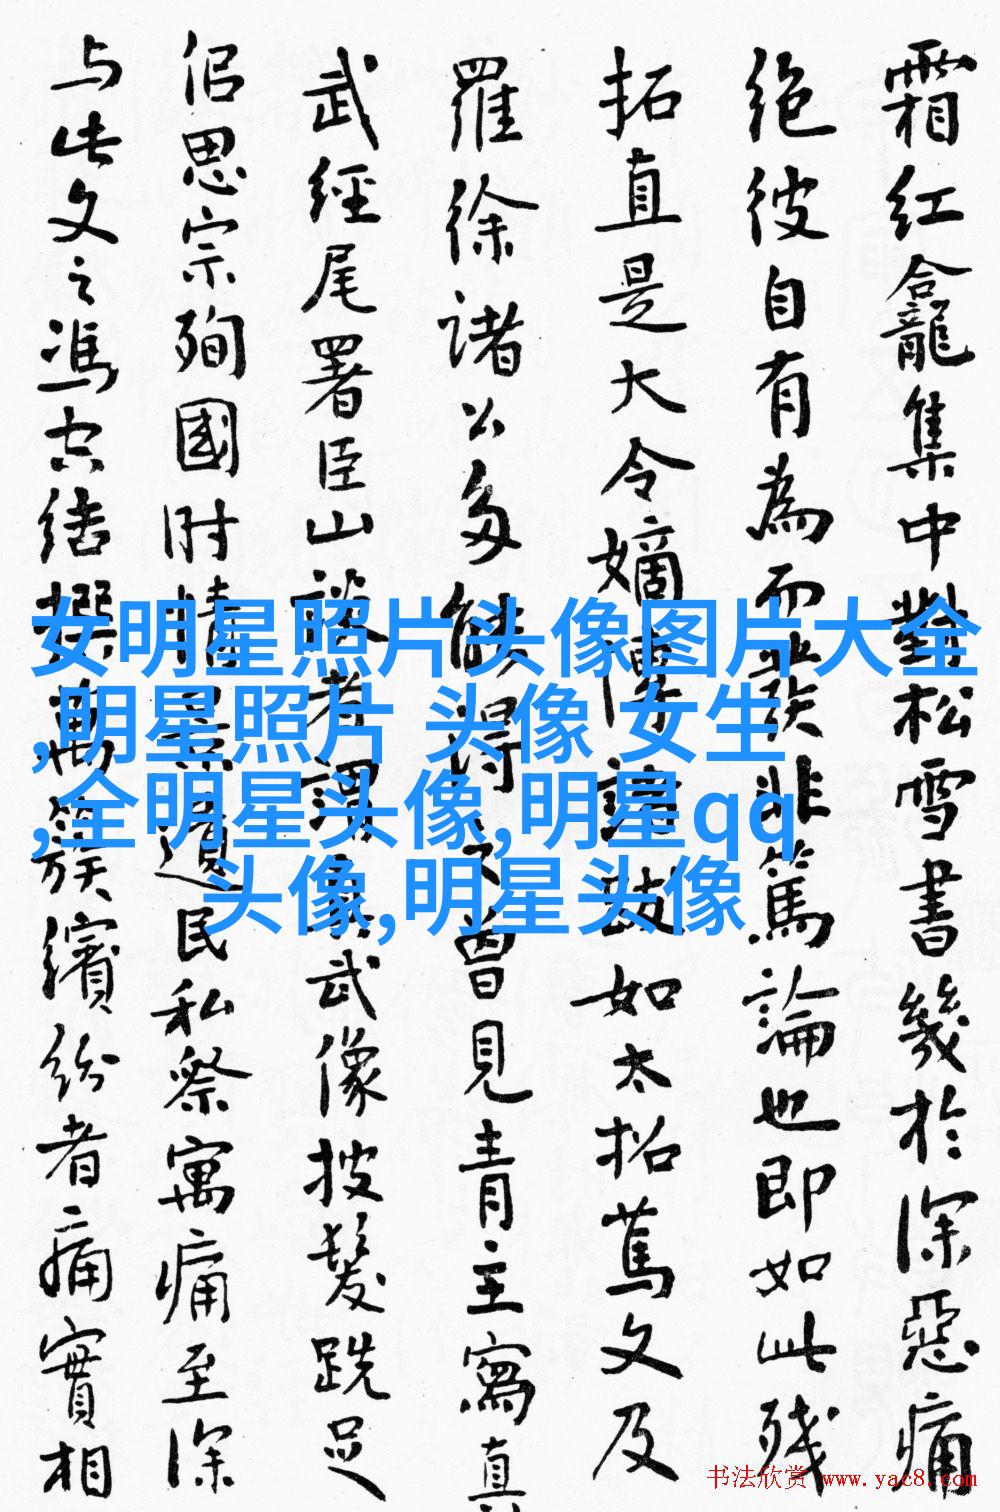 霜紅龕集中對松雪書幾於深惡痛
絶彼自有為而發非篤論也即如此殘
拓直是大令嫡跋如太招文及
羅徐諸公多能得曾見青主寫真
武經尾署臣山者謂武像披髮跣足
侣思宗殉國时情景遺民私察寓痛至深
与此文之馮空結撰萬簇繽紛者痛實相
女明星照片头像图片大全
,明星照片 头像 女生
,全明星头像,明星qq
头像,明星头像
书法欣赏 www.yac8.com